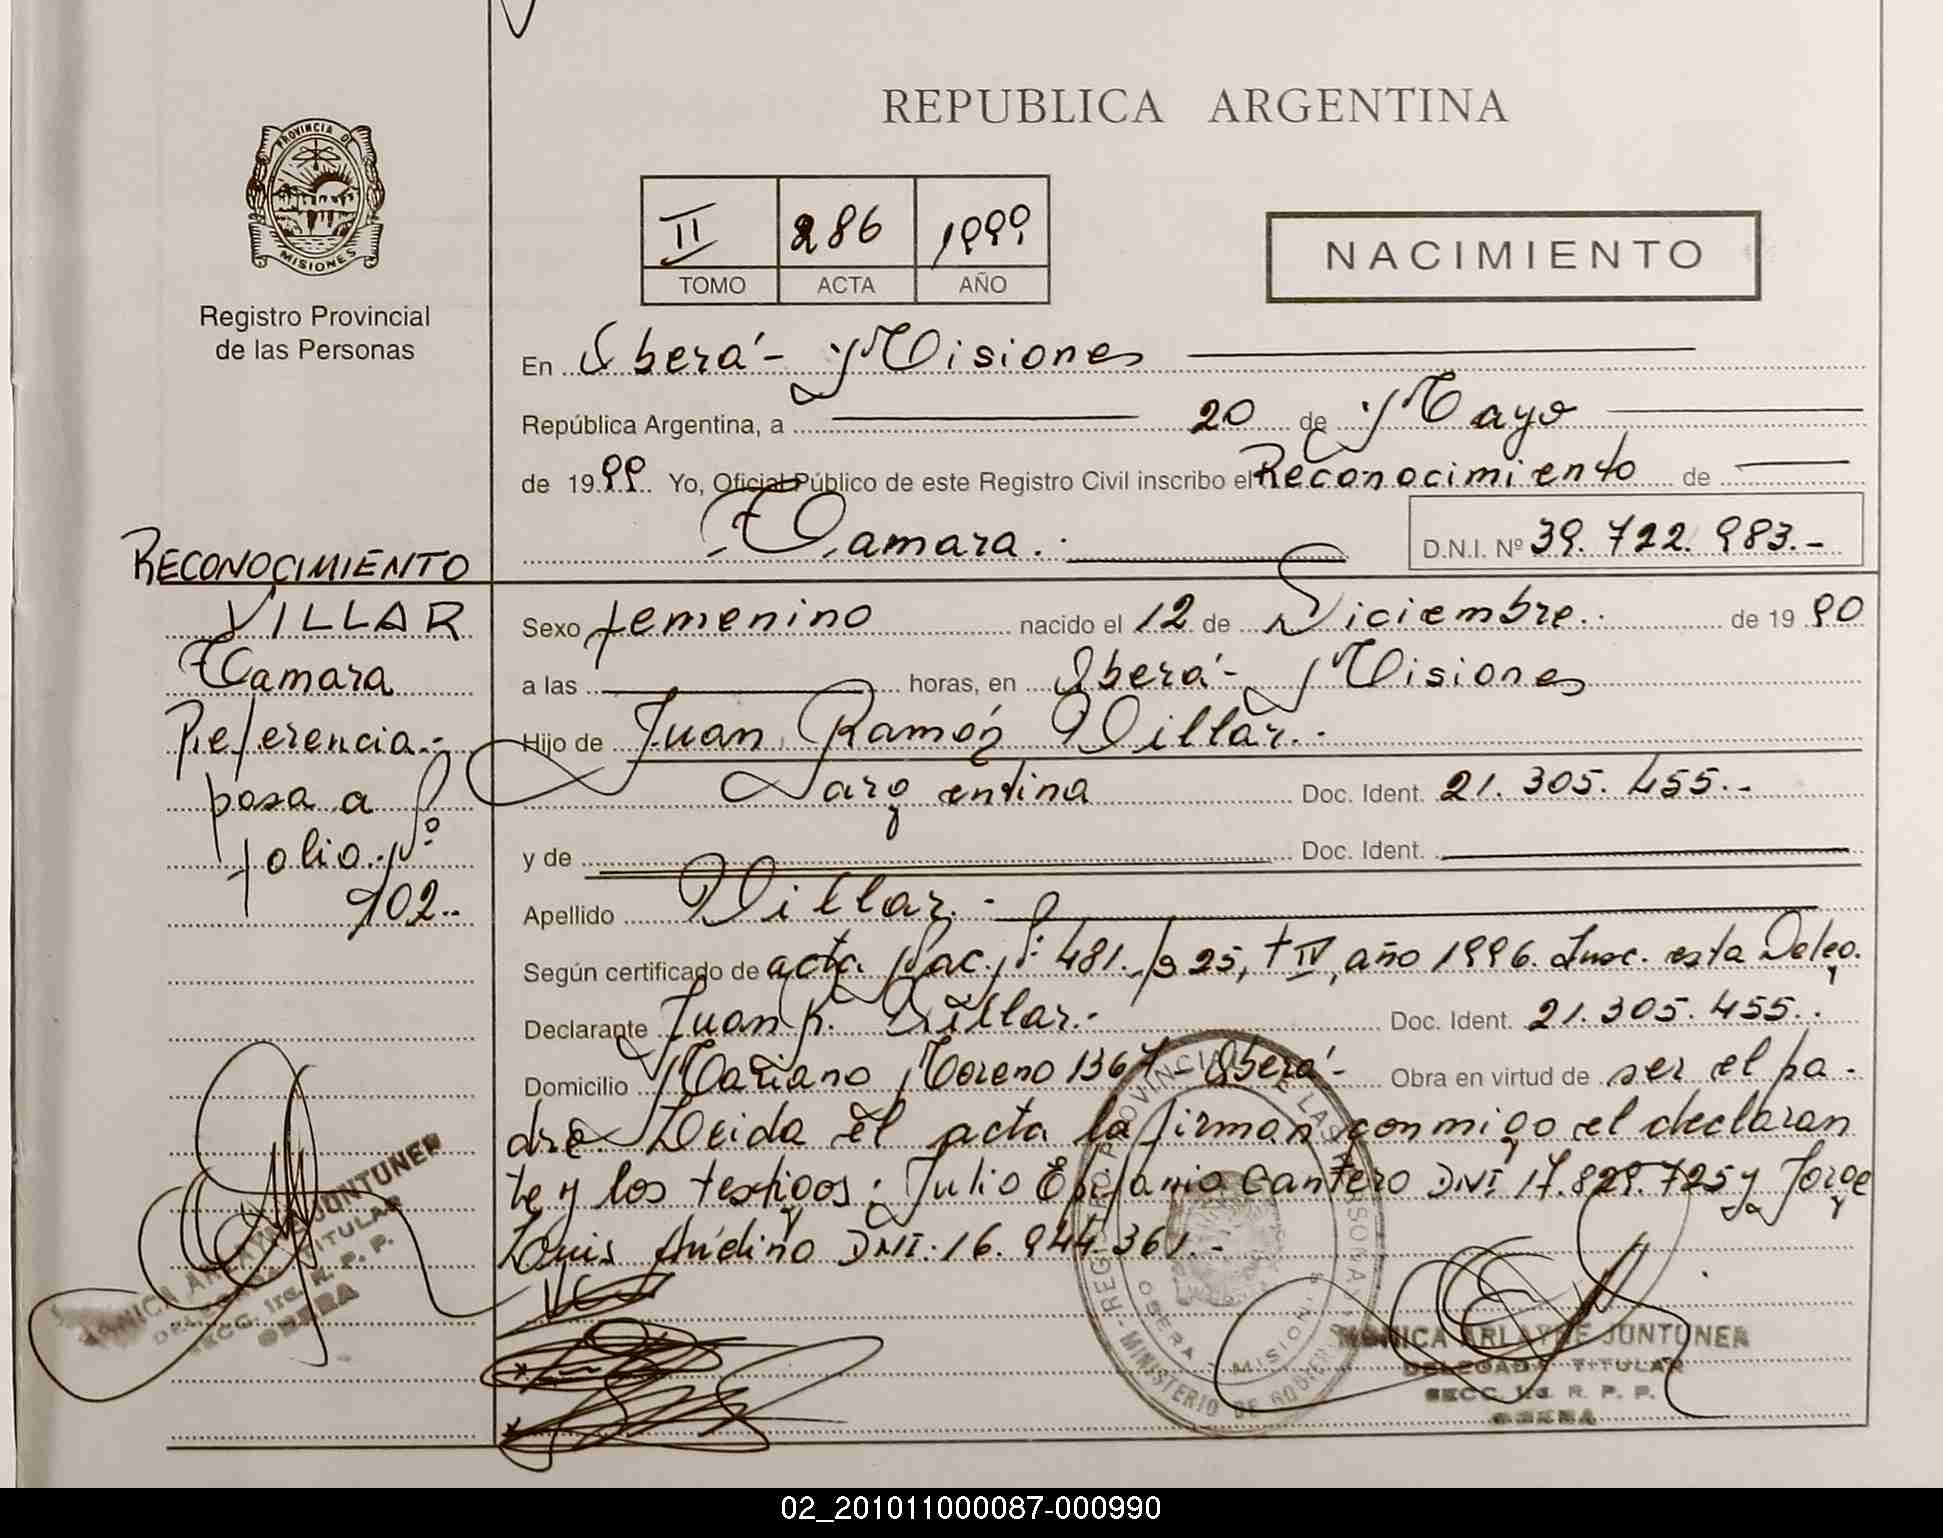 REPUBLICA ARGENTINA
PROVINCIA DE
MISIONES
Registro Provincial
de las Personas
II 286 1999
TOMO ACTA AÑO
NACIMIENTO
En Oberá - Misiones
República Argentina, a 20 de Mayo
de 1999. Yo, Oficial Público de este Registro Civil inscribo el Reconocimiento de
Tamara.
D.N.I. Nº 39.722.983.-
RECONOCIMIENTO
VILLAR
Tamara
Referencia.-
pasa a
folio Nº
102..
Sexo femenino nacido el 12 de Diciembre.. de 19 90
a las horas, en Oberá - Misiones
Hijo de Juan Ramón Villar..
argentina Doc. Ident. 21.305.455..
y de Doc. Ident.
Apellido Villar.-
Según certificado de acta Nac. Nº 481. Fº 25, tº IV, año 1996. Insc. esta Deleg.
Declarante Juan R. Villar.- Doc. Ident. 21.305.455..
Domicilio Mariano Moreno 1367 - Oberá - Obra en virtud de ser el pa-
dre. Leida el acta la firman conmigo el declaran
te y los testigos: Julio Epifanio Cantero DNI 17.829.725 y Jorge
Louis Andino DNI: 16.944.361.-
MONICA ARLAYNE JUNTUNEN
DELEGADA TITULAR
SECC. 1ra. R. P. P.
OBERA
REGISTRO PROVINCIAL DE LAS PERSONAS
OBERA MISIONES
MINISTERIO DE GOBIERNO
MONICA ARLAYNE JUNTUNEN
DELEGADA TITULAR
SECC. 1ra. R. P. P.
OBERA
02_201011000087-000990